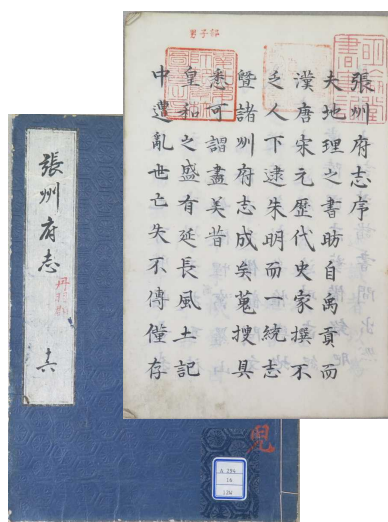 張州府志序
夫地理之書昉自禹貢而
漢唐宋元歷代史家撰不
乏人下逮朱明而一統志
暨諸州府志成矣蒐搜具
悉可謂盡美昔
皇和之盛有延長風土記
中遭亂世亡失不傳僅存
張州府志
丹羽郡